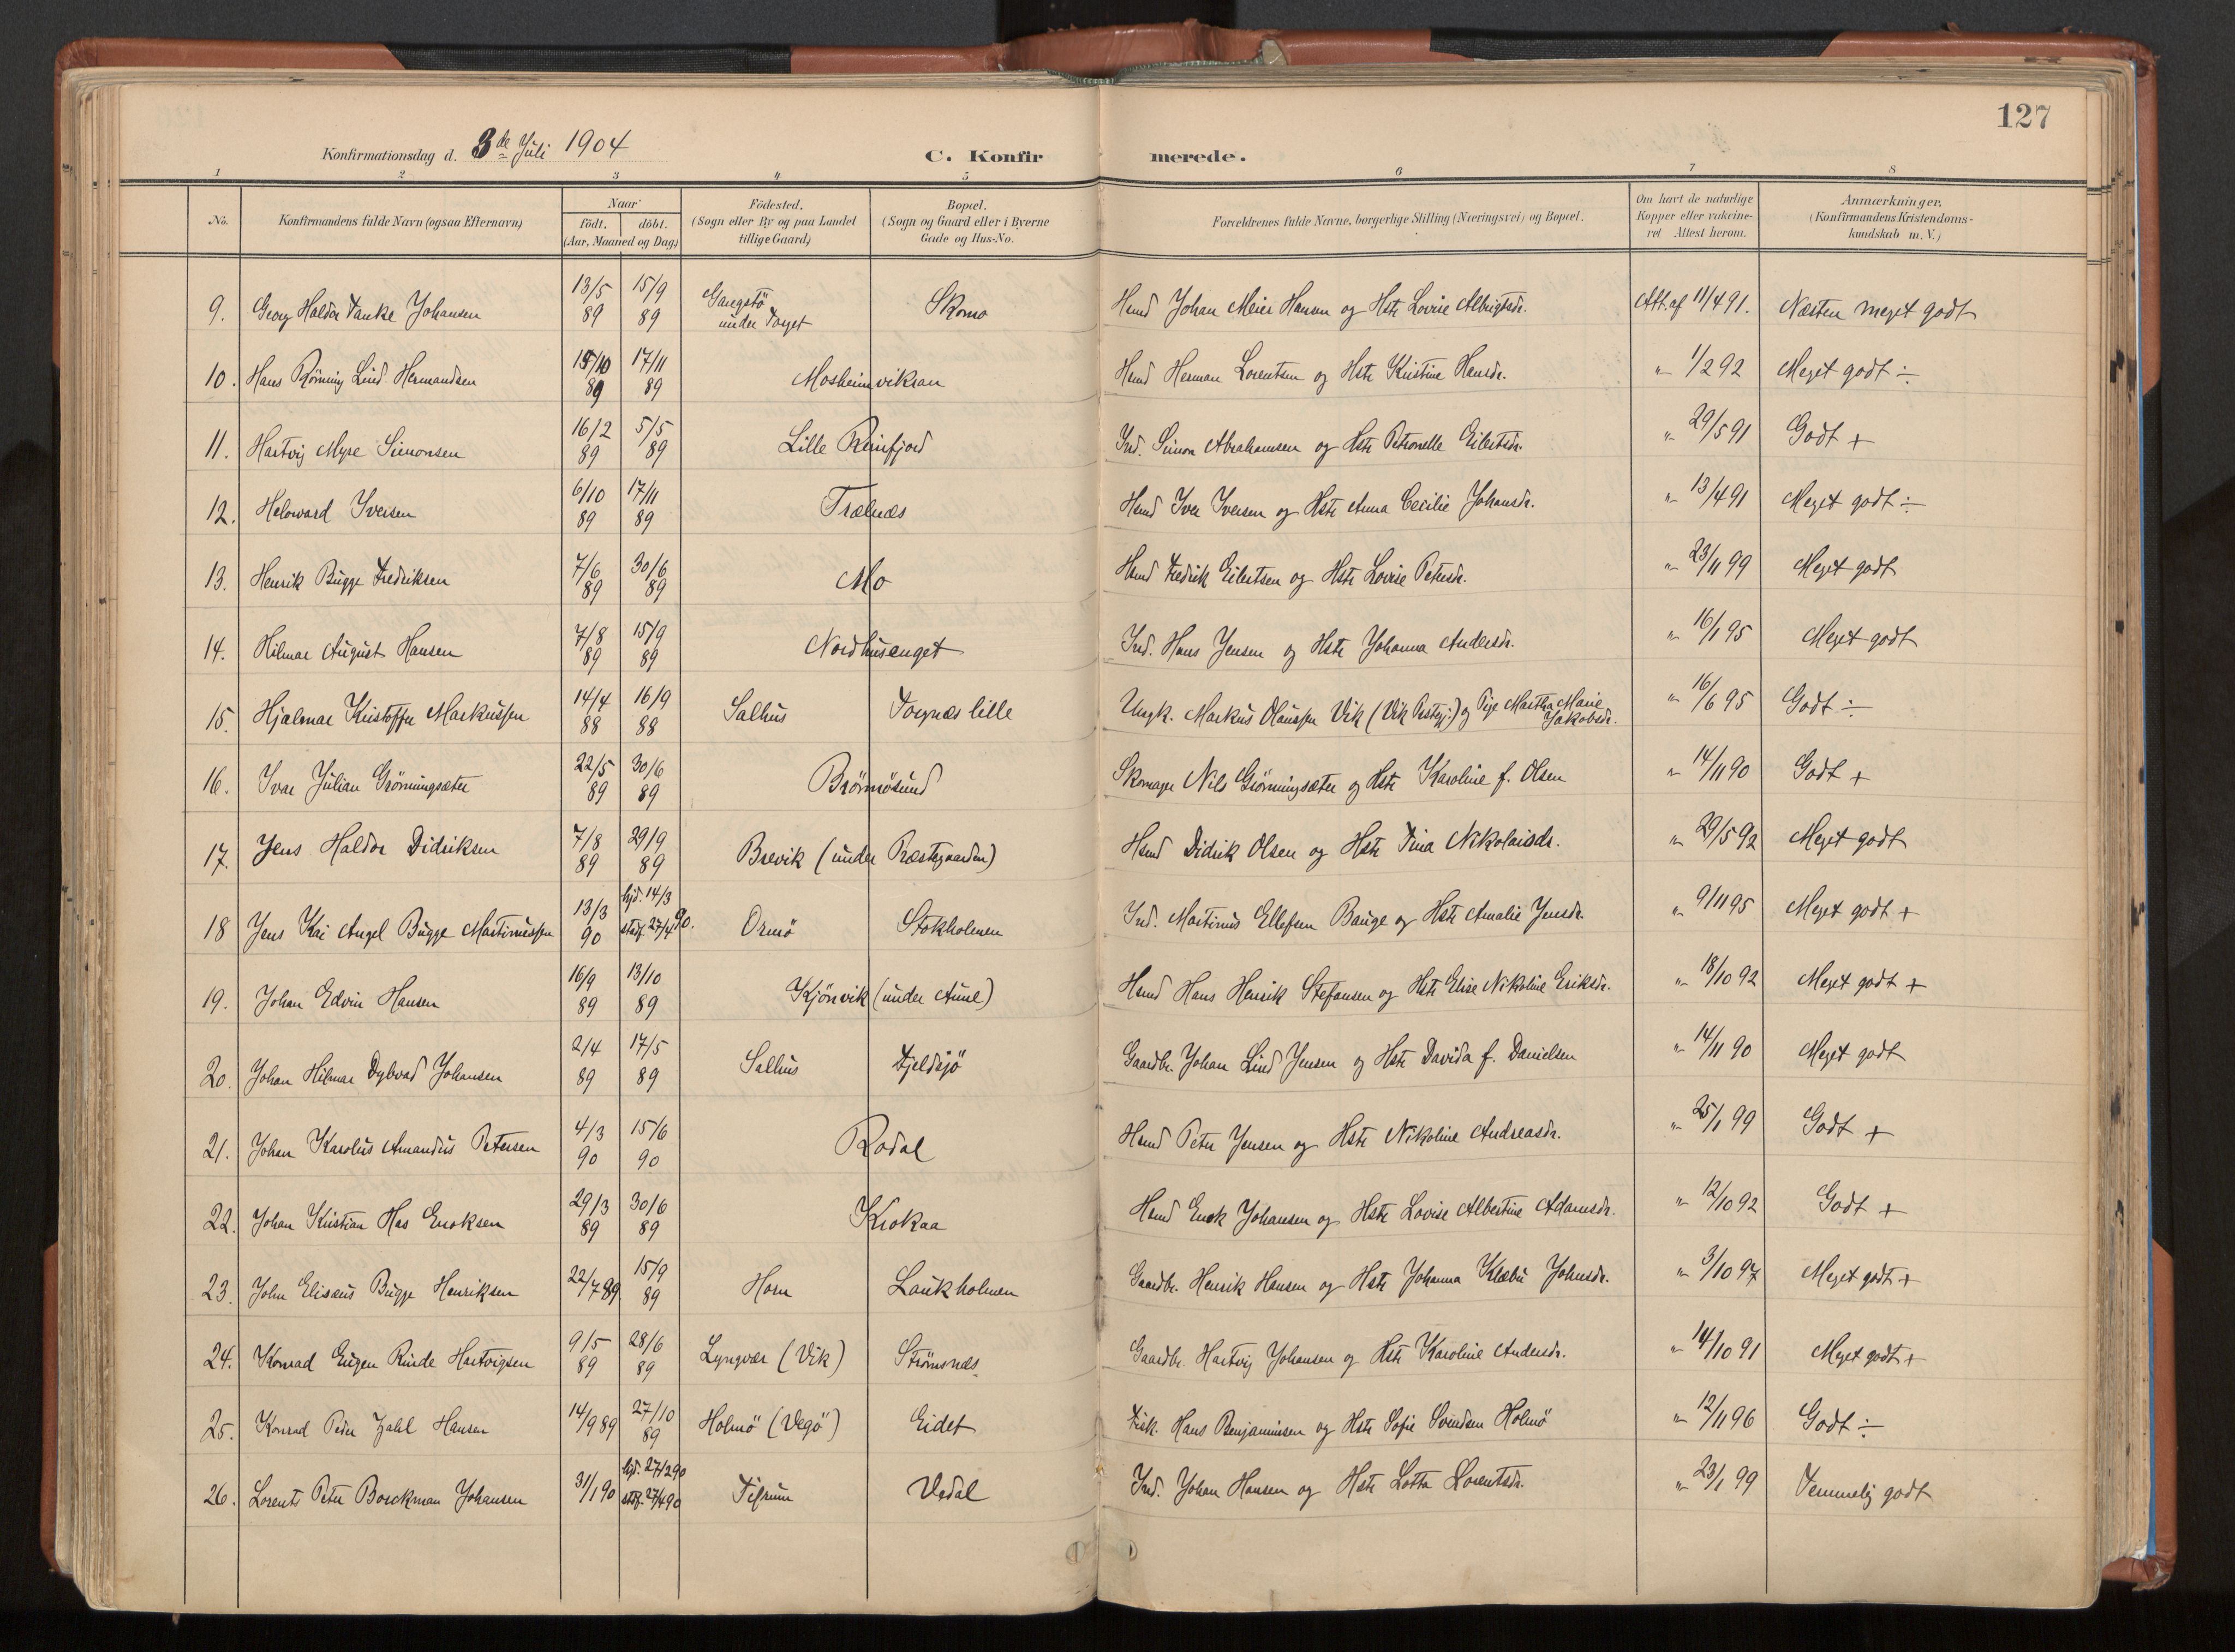 127
Konfirmationsdag d. 3de Juli 1904
C. Konfirmerede.
1 2 3 4 5 6 7 8
No.
Konfirmandens fulde Navn (ogsaa Efternavn)
Naar
födt. döbt.
(Aar, Maaned og Dag)
Födested.
(Sogn eller By og paa Landet
tillige Gaard)
Bopæl.
(Sogn og Gaard eller i Byerne
Gade og Hus-No.
Forældrenes fulde Navne, borgerlige Stilling (Næringsvei) og Bopæl.
Om havt de naturlige
Kopper eller vakcine-
ret Attest herom.
Anmærkninger,
(Konfirmandens Kristendoms-
kundskab m. V.)
9. Georg Haldor Tanke Johansen 13/5 89 15/9 89 Gangstö under Torget Skomo Hsmd Johan Meier Hansen og Hstr Lovise Albrigtsdr. Att. af 11/4 91. Næsten meget godt
10. Hans Rörning Lind Hermandsen 15/10 89 17/11 89 Mosheimviksan Hsmd Herman Lorentsen og Hstr Kristine Hansdr. " 1/2 92 Meget godt ÷
11. Hartvig Myre Simonsen 16/2 89 5/5 89 Lille Reinfjord Ind. Simon Abrahamsen og Hstr Petronelle Eilertsdr. " 29/5 91 Godt +
12. Heloward Iversen 6/10 89 17/11 89 Trælnæs Hsmd Iver Iversen og Hstr Anna Cecilie Johansdr. " 13/4 91 Meget godt ÷
13. Henrik Bugge Fredriksen 7/6 89 30/6 89 Mo Hsmd Fredrik Eilertsen og Hstr Lovise Petersdr. " 23/11 99 Meget godt
14. Hilmar August Hansen 7/8 89 15/9 89 Nordhusenget Ind. Hans Jensen og Hstr Johanna Andersdr. " 16/1 95 Meget godt
15. Hjalmar Kristoffer Markussen 14/4 88 16/9 88 Salhus Torgnæs lille Ungk. Markus Olaussen Vik (Vik Prstgj.) og Pige Martha Marie Jakobsdr. " 16/6 95 Godt ÷
16. Ivar Julian Grönningsæter 22/5 89 30/6 89 Brönnösund Skomager Nils Grönningsæter og Hstr Karoline f. Olsen " 14/11 90 Godt +
17. Jens Haldor Didriksen 7/8 89 29/9 89 Brevik (under Præstegaarden) Hsmd Didrik Olsen og Hstr Tina Nikolaisdr. " 29/5 92 Meget godt
18 Jens Kai Angel Bugge Martinussen 13/3 90 hjd. 14/3 stadf. 27/4 90. Ormö Stokholmen Ind. Martinus Ellefsen Bauge og Hstr Amalie Jensdr. " 9/11 95 Meget godt +
19. Johan Edvin Hansen 16/9 89 13/10 89 Kjönvik (under Aune) Hsmd Hans Henrik Stefansen og Hstr Elise Nikoline Eriksdr. " 18/10 92 Meget godt +
20. Johan Hilmar Dybvad Johansen 2/4 89 17/5 89 Salhus Fjeldsjö Gaardbr. Johan Lind Jensen og Hstr Davida f. Danielsen " 14/11 90 Meget godt
21. Johan Karolus Amandus Petersen 4/3 90 15/6 90 Rodal Hsmd Peter Jensen og Hstr Nikoline Andreasdr. " 25/1 99 Godt +
22. Johan Kristian Has Enoksen 29/3 89 30/6 89 Krokaa Hsmd Enok Johansen og Hstr Lovise Albertine Adamsdr. " 12/10 92 Godt +
23. John Elisæus Bugge Henriksen 22/7 89 15/9 89 Horn Laukholmen Gaardbr. Henrik Hansen og Hstr Johanna Klæbu Johnsdr. " 3/10 97 Meget godt +
24. Konrad Eugen Rinde Hartvigsen 9/5 89 28/6 89 Lyngvær (Vik) Strömsnæs Gaardbr. Hartvig Johansen og Hstr Karoline Andersdr. " 14/10 91 Meget godt +
25. Konrad Peder Zahl Hansen 14/9 89 27/10 89 Holmö (Vegö) Eidet Fisk. Hans Benjaminsen og Hstr Sofie Svindsen Holmö " 12/11 96 Godt ÷
26. Lorents Peter Borckman Johansen 31/1 90 hjd. 27/2 90 stdf. 27/4 90 Tilrum Vedal Ind. Johan Hansen og Hstr Lotta Lorentsdr. " 23/1 99 Temmelig godt